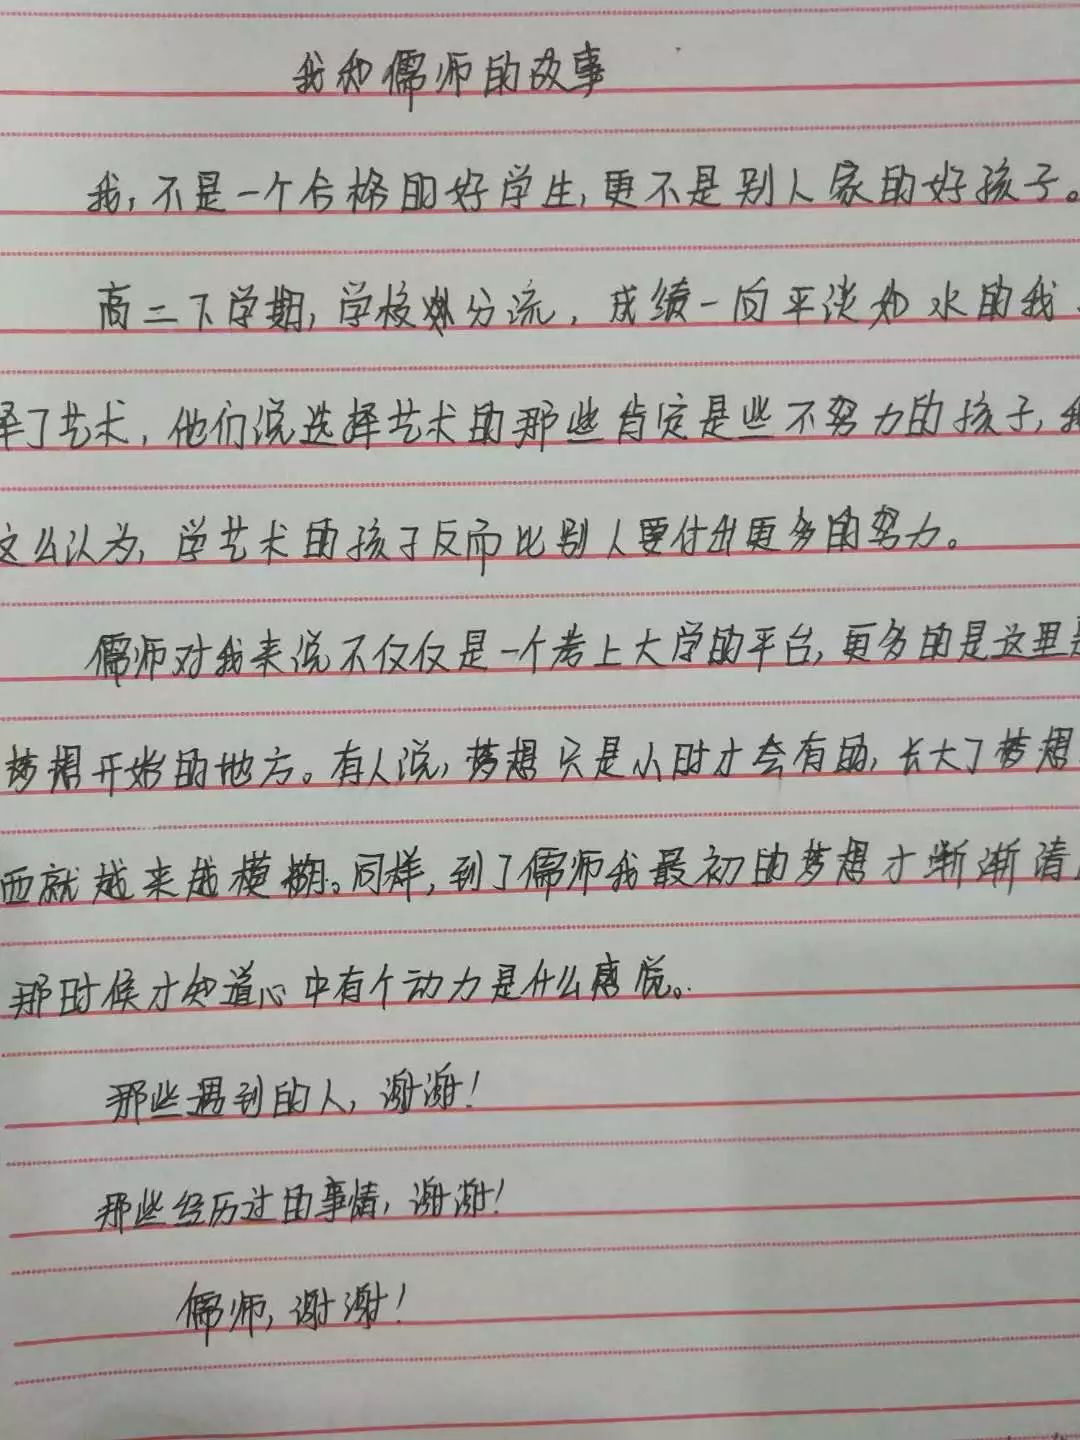 我和儒师的故事
我,不是一个合格的好学生,更不是别人家的好孩子。
高二下学期,学校分流,成绩一向平淡如水的我
择了艺术,他们说选择艺术的那些肯定是些不努力的孩子,我
这么认为,学艺术的孩子反而比别人要付出更多的努力。
儒师对我来说不仅仅是一个考上大学的平台,更多的是这里是
梦想开始的地方。有人说,梦想只是小时才会有的,长大了梦想
西就越来越模糊。同样,到了儒师我最初的梦想才渐渐清
那时候才知道心中有个动力是什么感觉。
那些遇到的人,谢谢!
那些经历过的事情,谢谢!
儒师,谢谢!